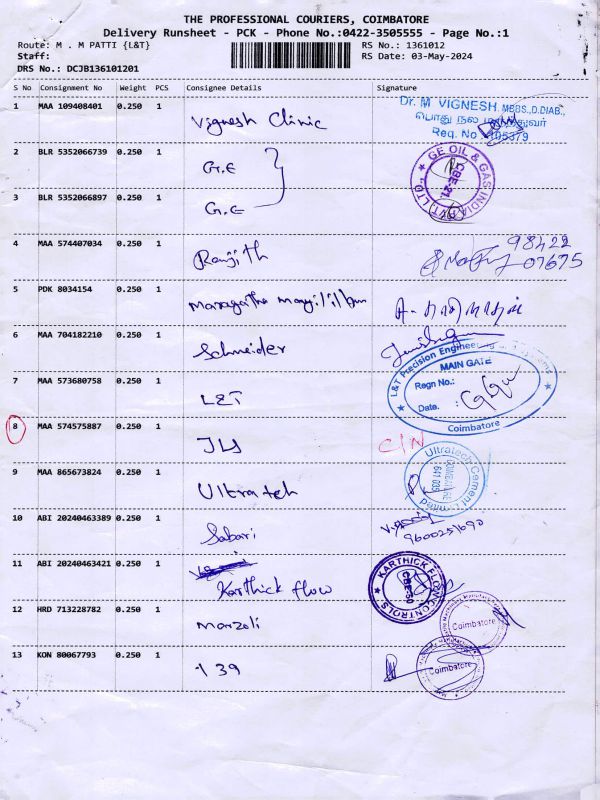 THE PROFESSIONAL COURIERS, COIMBATORE
Delivery Runsheet - PCK - Phone No.:0422-3505555 - Page No.:1
Route: M . M PATTI {L&T}
RS No.: 1361012
Staff:
RS Date: 03-May-2024
DRS No.: DCJB136101201
S No Consignment No Weight PCS Consignee Details Signature
1 MAA 109408401 0.250 1 Vignesh Clinic
Dr. M VIGNESH MBBS.,D.DIAB.,
பொது நல
Reg. No : 105379
2 BLR 5352066739 0.250 1 G.E
GE OIL & GAS INDIA PVT. LTD.,
CBE-21.
3 BLR 5352066897 0.250 1 G.E
4 MAA 574407034 0.250 1 Ranjith
98422
07675
5 PDK 8034154 0.250 1
6 MAA 704182210 0.250 1 Schneider
7 MAA 573680758 0.250 1 L&T
L&T Precision Engineering
MAIN GATE
Regn No.:
Date. :
Coimbatore
8 MAA 574575887 0.250 1 C/N
9 MAA 865673824 0.250 1 Ultratech
Ultratech Cement Limited
COIMBATORE
10 ABI 20240463389 0.250 1 Sabari
9600251690
11 ABI 20240463421 0.250 1 Karthick flow
KARTHICK FLOW CONTROLS
CBE-50
12 HRD 713228782 0.250 1 Marzoli
Coimbatore
13 KON 80067793 0.250 1 139
Coimbatore